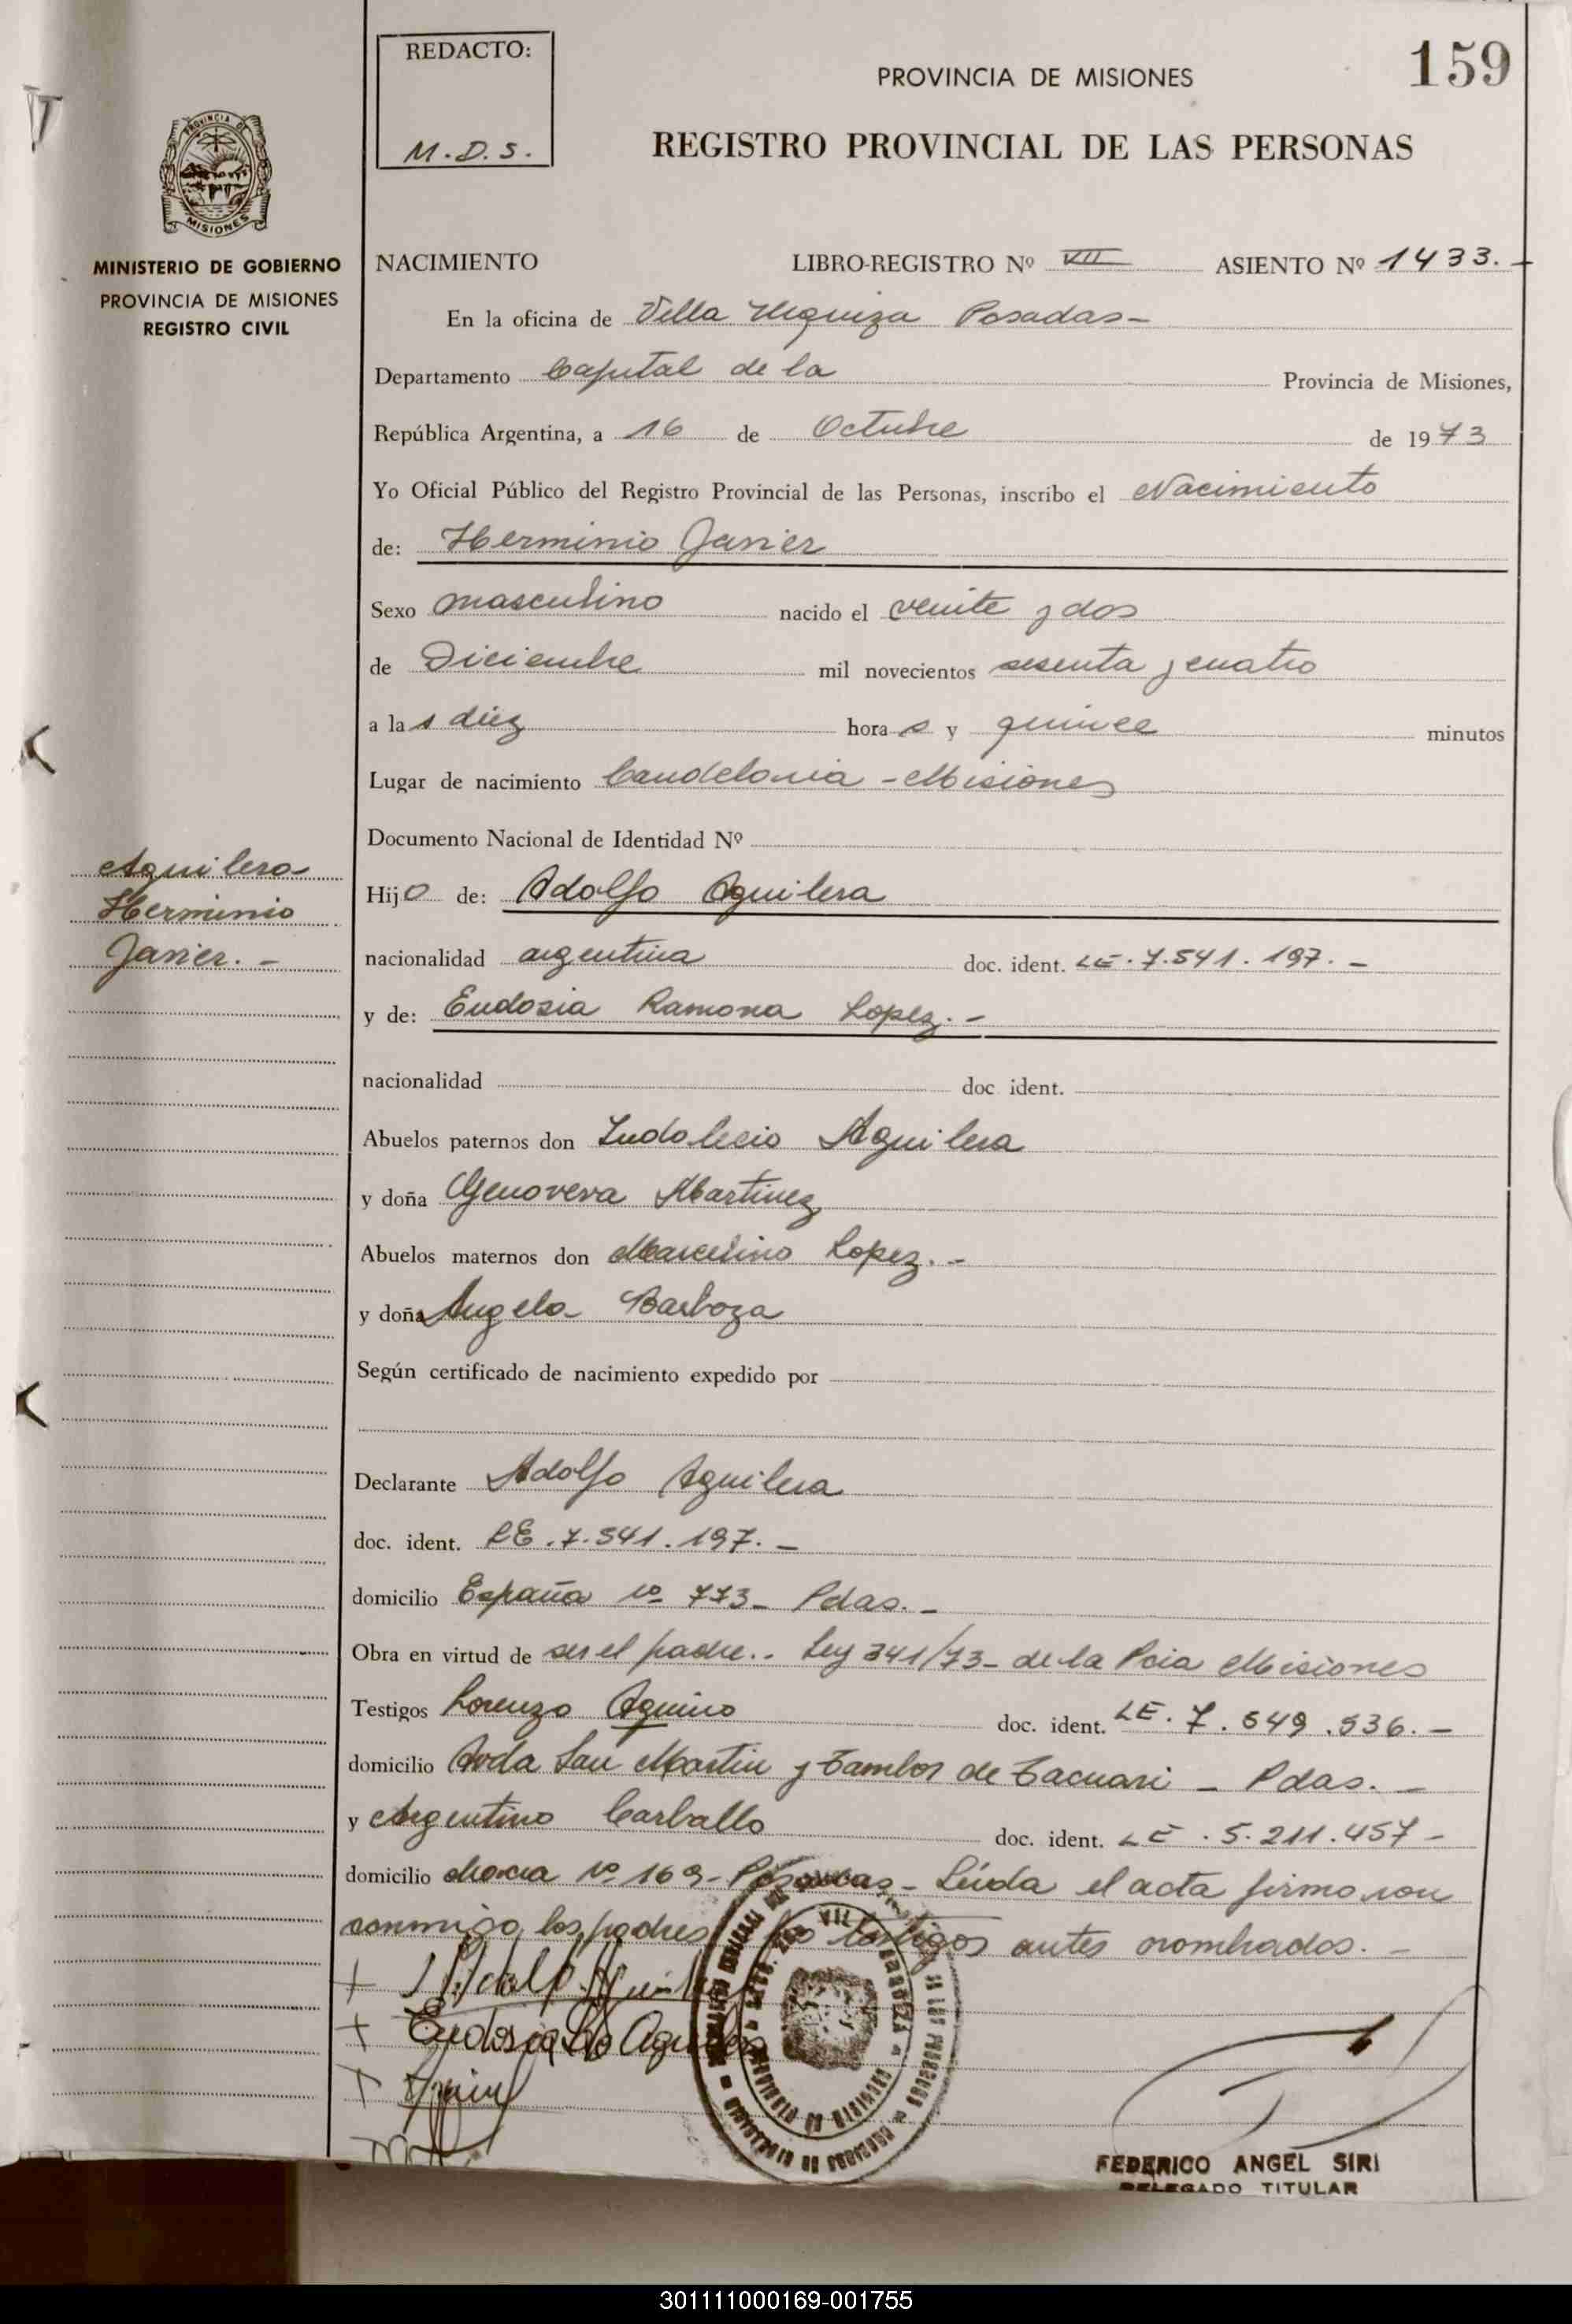 REDACTO:
M.D.S.
PROVINCIA DE MISIONES
159
REGISTRO PROVINCIAL DE LAS PERSONAS
PROVINCIA DE
MISIONES
MINISTERIO DE GOBIERNO
PROVINCIA DE MISIONES
REGISTRO CIVIL
NACIMIENTO LIBRO-REGISTRO Nº VII ASIENTO Nº 1433.-
En la oficina de Villa Urquiza Posadas-
Departamento Capital de la Provincia de Misiones,
República Argentina, a 16 de Octubre de 1973
Yo Oficial Público del Registro Provincial de las Personas, inscribo el Nacimiento
de: Herminio Javier
Sexo masculino nacido el veinte y dos
de Diciembre mil novecientos sesenta y cuatro
a las diez horas y quince minutos
Lugar de nacimiento Candelaria - Misiones
Documento Nacional de Identidad Nº
Aguilera
Herminio
Javier.-
Hijo de: Adolfo Aguilera
nacionalidad argentina doc. ident. LE. 7.541.197.-
y de: Eudosia Ramona Lopez.-
nacionalidad doc. ident.
Abuelos paternos don Indolecio Aguilera
y doña Genoveva Martinez
Abuelos maternos don Marcelino Lopez.-
y doña Angela Barboza
Según certificado de nacimiento expedido por
Declarante Adolfo Aguilera
doc. ident. LE.7.541.197.-
domicilio España Nº 773- Pdas.-
Obra en virtud de ser el padre.. Ley 341/73- de la Pcia Misiones
Testigos Lorenzo Aquino doc. ident. LE. 7.549.536.-
domicilio Avda San Martin y Tambor de Tacuari - Pdas.-
y Argentino Carballo doc. ident. LE.5.211.457-
domicilio Nº 169- Posadas- Leída el acta firman con
conmigo los padres los testigos antes nombrados.-
Eudosia L de Aguilera
FEDERICO ANGEL SIRI
DELEGADO TITULAR
301111000169-001755